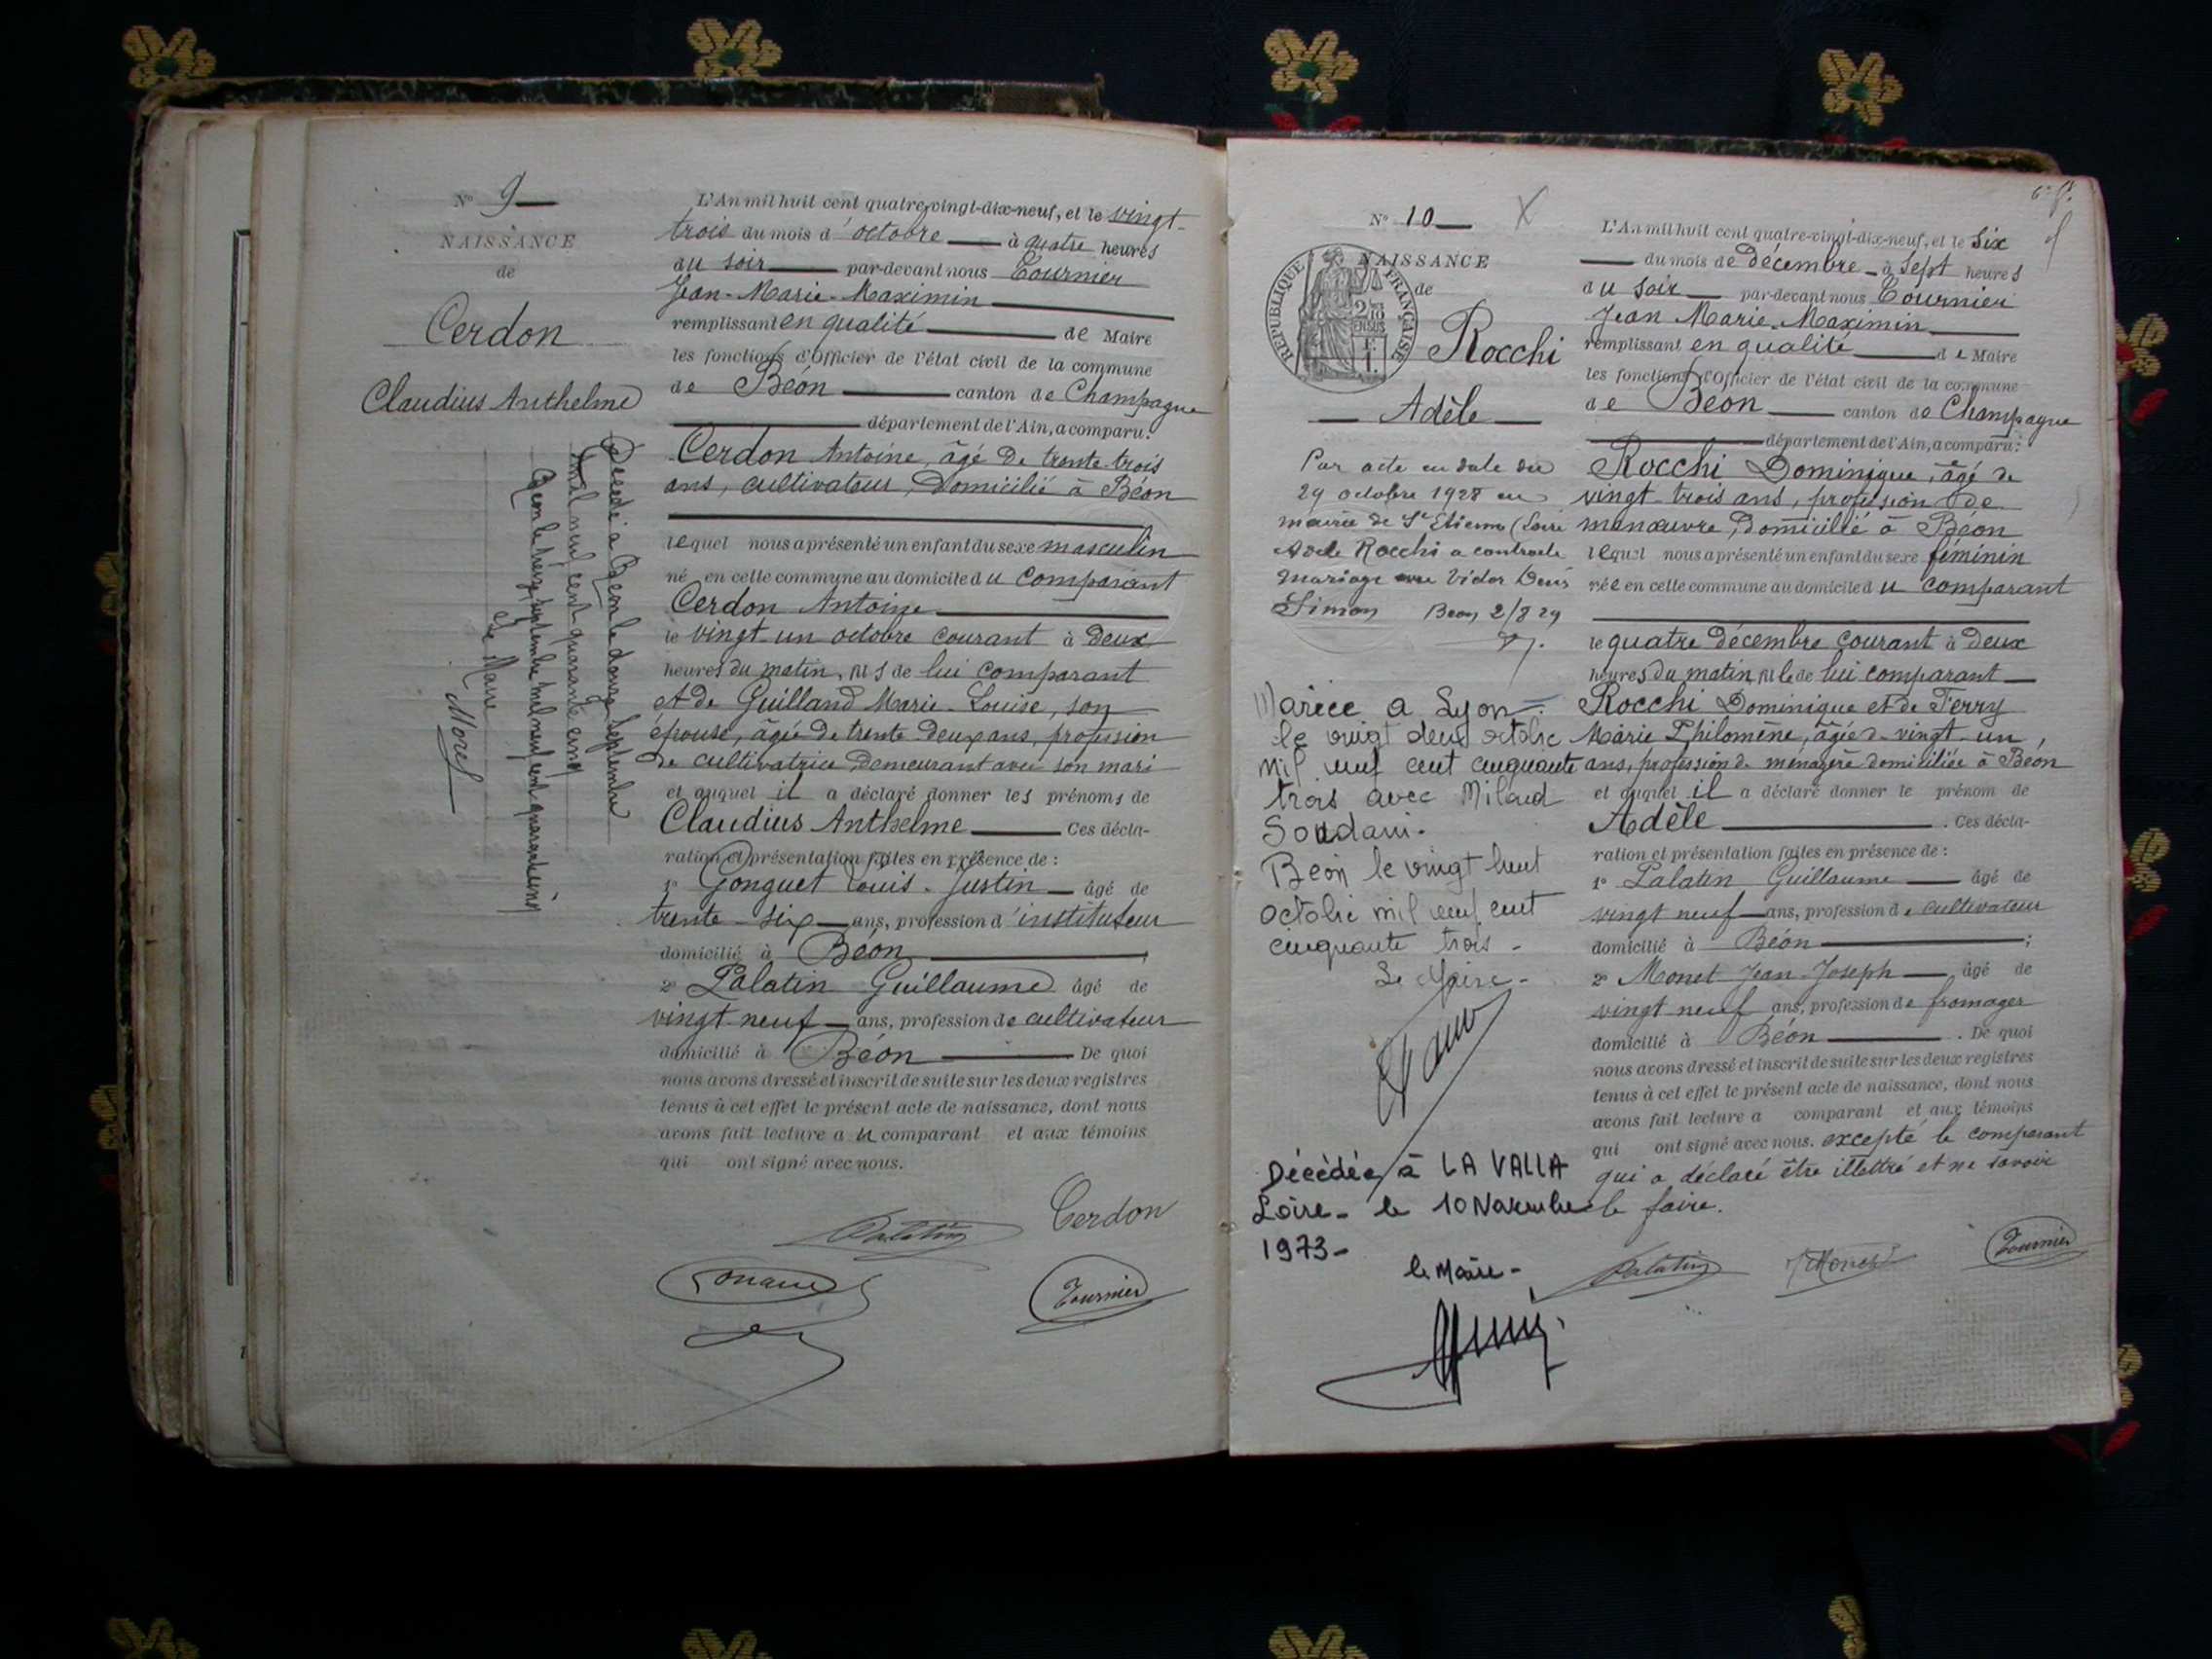 N° 9
NAISSANCE
de
Cerdon
Claudius Anthelme
Décédé à Béon le douze Septembre
mil neuf cent quarante cinq
Béon le treize septembre mil neuf cent quarante cinq
Le Maire
Morel
L'An mil huit cent quatre-vingt-dix-neuf, et le vingt-
trois du mois d'octobre à quatre heures
du soir par-devant nous Tournier
Jean-Marie-Maximin
remplissant en qualité de Maire
les fonctions d'Officier de l'état civil de la commune
de Béon canton de Champagne
département de l'Ain, a comparu:
Cerdon Antoine, âgé de trente-trois
ans, cultivateur, domicilié à Béon
lequel nous a présenté un enfant du sexe masculin
né en cette commune au domicile du comparant
Cerdon Antoine
le vingt-un octobre courant à deux
heures du matin, fils de lui comparant
et de Guilland Marie-Louise, son
épouse, âgée de trente-deux ans, profession
de cultivatrice demeurant avec son mari
et auquel il a déclaré donner les prénoms de
Claudius Anthelme Ces décla-
ration et présentation faites en présence de :
1° Gonguet Louis-Justin âgé de
trente-six ans, profession d'instituteur
domicilié à Béon ;
2° Palatin Guillaume âgé de
vingt-neuf ans, profession de cultivateur
domicilié à Béon De quoi
nous avons dressé et inscrit de suite sur les deux registres
tenus à cet effet le présent acte de naissance, dont nous
avons fait lecture au comparant et aux témoins
qui ont signé avec nous.
Palatin Cerdon
Tournier
N° 10 X
RÉPUBLIQUE FRANÇAISE
NAISSANCE
de
Rocchi
Adèle
Par acte en date du
29 octobre 1928 en
mairie de St Etienne (Loire
Adèle Rocchi a contracté
mariage avec Victor Denis
Simon Béon 2/8 29
Mariée à Lyon
le vingt deux octobre
mil neuf cent cinquante
trois avec Milaud
Soudani.
Béon le vingt huit
octobre mil neuf cent
cinquante trois -
Le Maire -
Décédée à LA VALLA
Loire - le 10 Novembre
1973 -
le Maire -
L'An mil huit cent quatre-vingt-dix-neuf, et le six
du mois de décembre à sept heures
du soir par-devant nous Tournier
Jean Marie-Maximin
remplissant en qualité de Maire
les fonctions d'Officier de l'état civil de la commune
de Béon canton de Champagne
département de l'Ain, a comparu:
Rocchi Dominique, âgé de
vingt-trois ans, profession de
manœuvre, domicilié à Béon
lequel nous a présenté un enfant du sexe féminin
née en cette commune au domicile du comparant
le quatre décembre courant à deux
heures du matin, fille de lui comparant
Rocchi Dominique et de Ferry
Marie Philomène, âgée de vingt-un
ans, profession de ménagère domiciliée à Béon
et auquel il a déclaré donner le prénom de
Adèle . Ces décla-
ration et présentation faites en présence de :
1° Palatin Guillaume âgé de
vingt neuf ans, profession de cultivateur
domicilié à Béon ;
2° Monet Jean-Joseph âgé de
vingt neuf ans, profession de fromager
domicilié à Béon . De quoi
nous avons dressé et inscrit de suite sur les deux registres
tenus à cet effet le présent acte de naissance, dont nous
avons fait lecture a comparant et aux témoins
qui ont signé avec nous. excepté le comparant
qui a déclaré être illettré et ne savoir
le faire.
Palatin J Monet Tournier